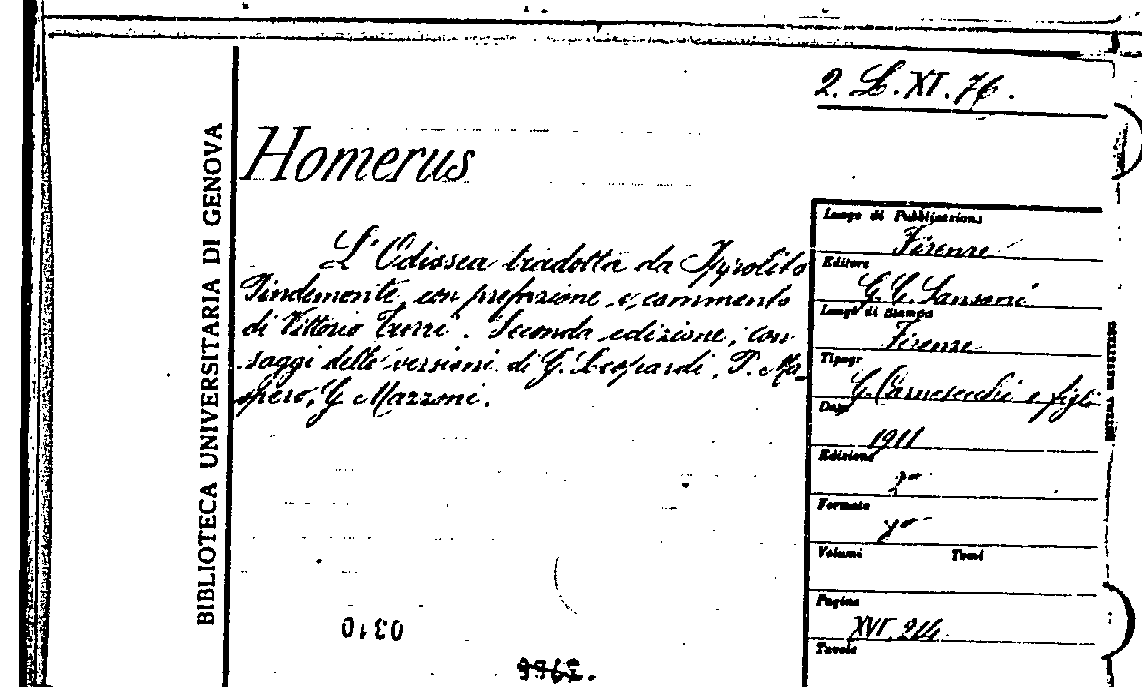 2. L. XI. 76.
BIBLIOTECA UNIVERSITARIA DI GENOVA
Homerus
L'Odissea tradotta da Ippolito
Pindemonte, con prefazione e commento
di Vittorio Turri. Seconda edizione, con
saggi delle versioni di G. Leopardi, P. Ma-
spero, G. Mazzoni.
Luogo di Pubblicazione
Firenze
Editore
G. C. Sansoni
Luogo di Stampa
Firenze
Tipogr
G. Carnesecchi e figli
Data
1911
Edizione
2ª
Formato
Volumi Tomi
Pagine
XVI, 214
Tavole
0310